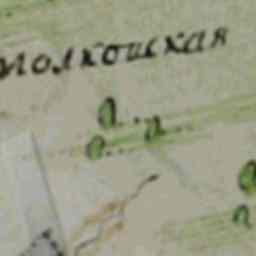 молкошская